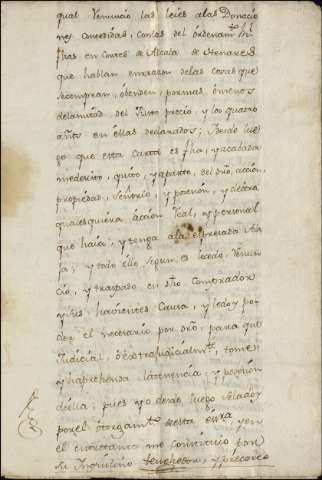 qual renuncio las leies a las Donacio
nes concedidas, con las del órdenamto
fhas en Cortes de Alcala de Henares
que hablan en razon de las cosas que
se compran, ó benden, por mas, ó menos
de la mitad del Justo precio, y los quatro
años en ellas declarados; Desde lue
go que esta carta es fha, y acabada
me desisto, quito, y aparto, del dro, accion,
propiedad, señorio, y posesion, y de otra
qualesquiera accion Real, y personal
que haia, y tenga a la expresada
fa; y todo ello segun es lo cedo, renun
cio, y traspaso en dho Comprador
y sus havientes Causa, y le doy po
der el necesario por dro, para que
Judicial, ó extrajudicialmte, tome
y haprehenda la tenencia, y posesion
de ella; pues yo desde luego se la doy
por el otorgamto de esta essra, y en
el interim me constituio por
su Inquilino tenehedor, y precario